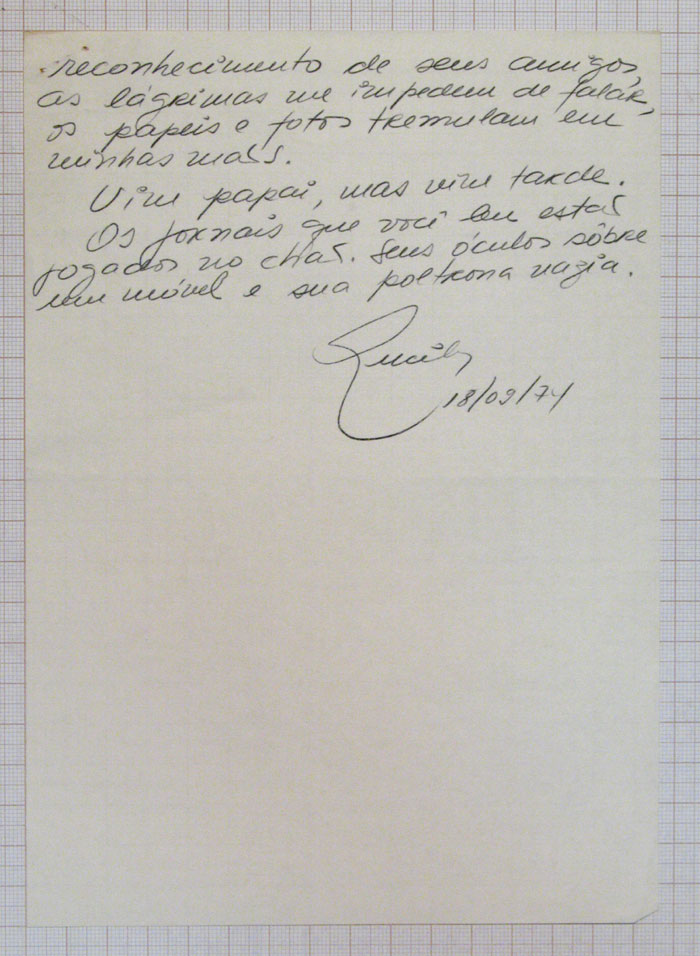 reconhecimento de seus amigos,
as lágrimas me impedem de falar,
os papeis e fotos tremulam em
minhas mãos.
Vim papai, mas vim tarde.
Os jornais que você leu estão
jogados no chão. Seus óculos sôbre
um móvel e sua poltrona vazia.
18/09/74